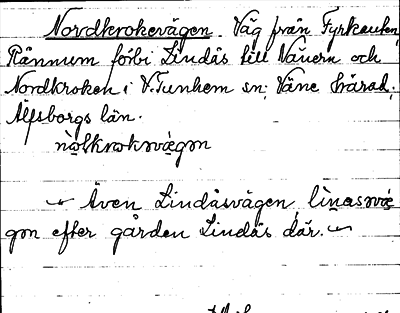 Nordkrokevägen. Väg från Fyrkanten,
Rännum förbi Lindås till Vänern och
Nordkroken i V. Tunhem sn; Väne härad;
Älfsborgs län.
Även Lindåsvägen,
gən efter gården Lindås där.